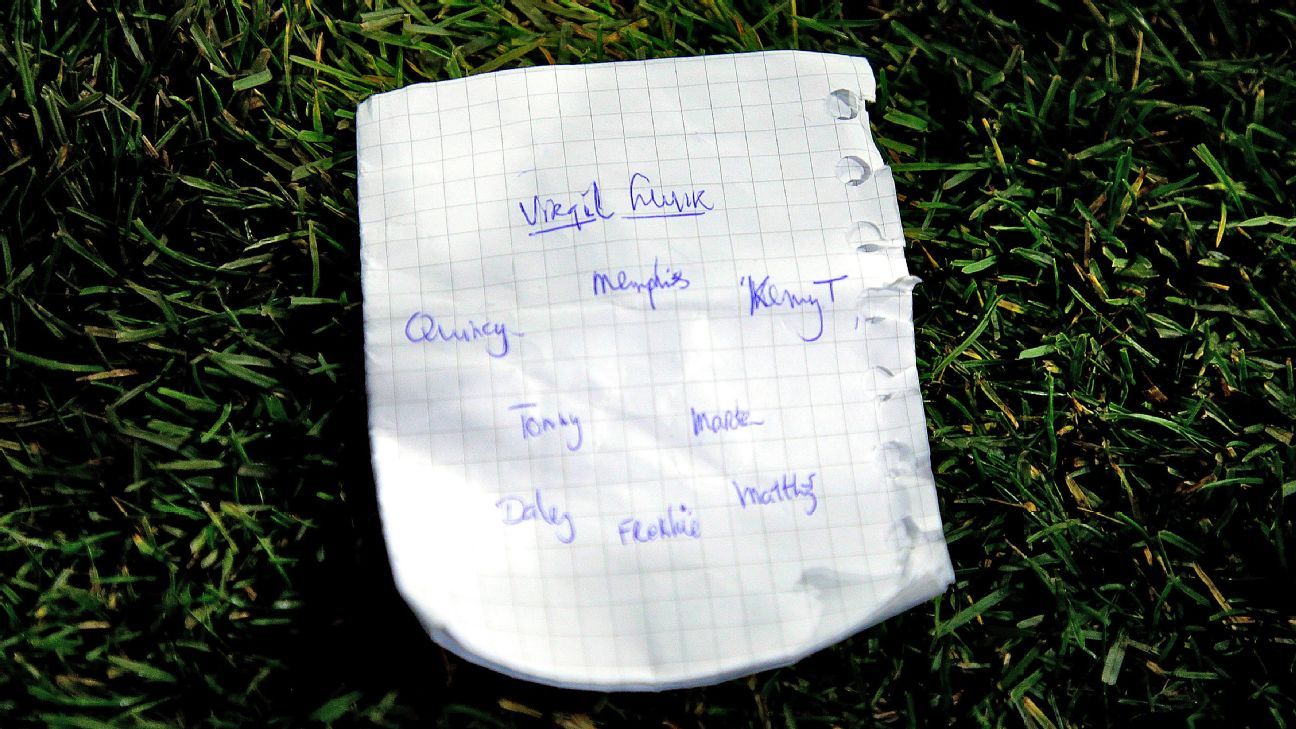 Virgil Luuk
Memphis
Kenny T
Quincy
Tonny
Marten
Daley
Frenkie
Matthijs